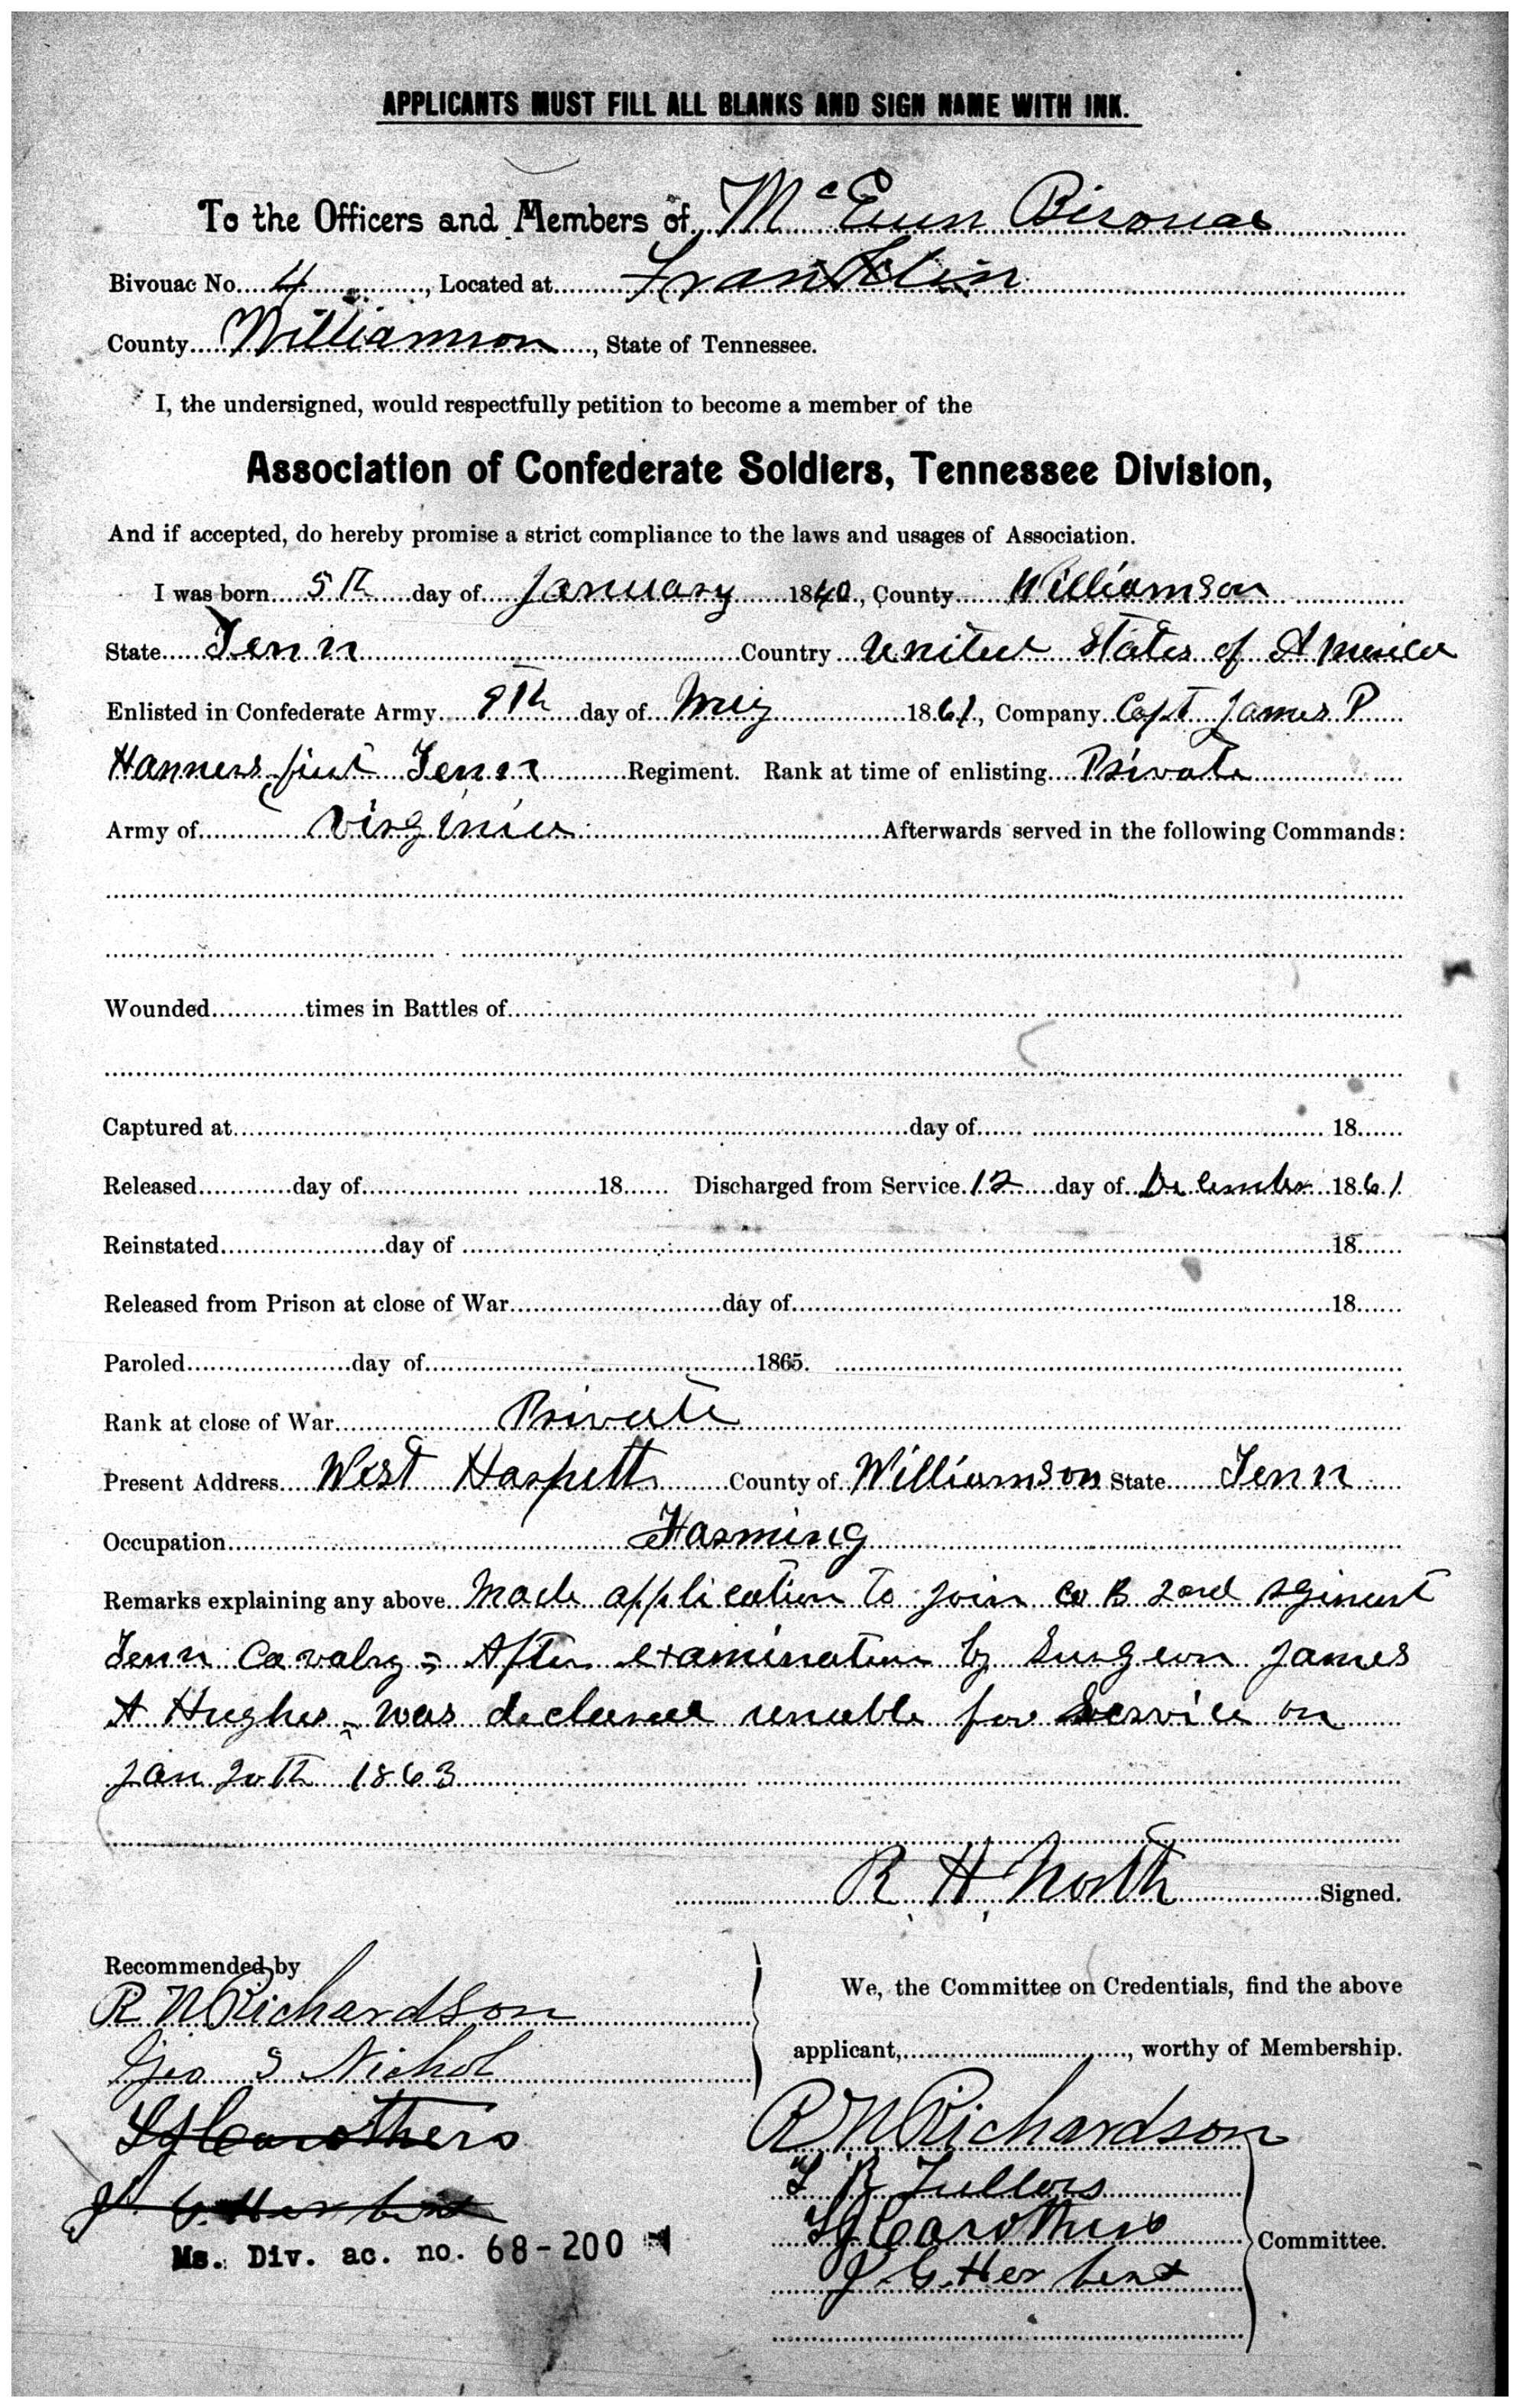 APPLICANTS MUST FILL ALL BLANKS AND SIGN NAME WITH INK.
To the Officers and Members of McEwen Bivouac
Bivouac No. 4, Located at Franklin
County Williamson, State of Tennessee.
I, the undersigned, would respectfully petition to become a member of the
Association of Confederate Soldiers, Tennessee Division,
And if accepted, do hereby promise a strict compliance to the laws and usages of Association.
I was born 5th day of January 1840, County Williamson
State Tenn Country United States of America
Enlisted in Confederate Army 9th day of May 1861, Company Capt James P
Hanners first Tenn Regiment. Rank at time of enlisting Private
Army of Virginia Afterwards served in the following Commands:
Wounded times in Battles of
Captured at day of 18
Released day of 18 Discharged from Service 12 day of December 1861
Reinstated day of 18
Released from Prison at close of War day of 18
Paroled day of 1865.
Rank at close of War Private
Present Address West Harpeth County of Williamson State Tenn
Occupation Farming
Remarks explaining any above Made application to join Co B 2nd regiment
Tenn Cavalry = After examination by Surgeon James
A Hughes - was declared unable for service on
Jan 20th 1863
R H North Signed.
Recommended by
R N Richardson
Geo S Nichol
Carothers
Herbert
We, the Committee on Credentials, find the above
applicant, , worthy of Membership.
R N Richardson
Carothers
J. G. Herbert
Committee.
Ms. Div. ac. no. 68-200